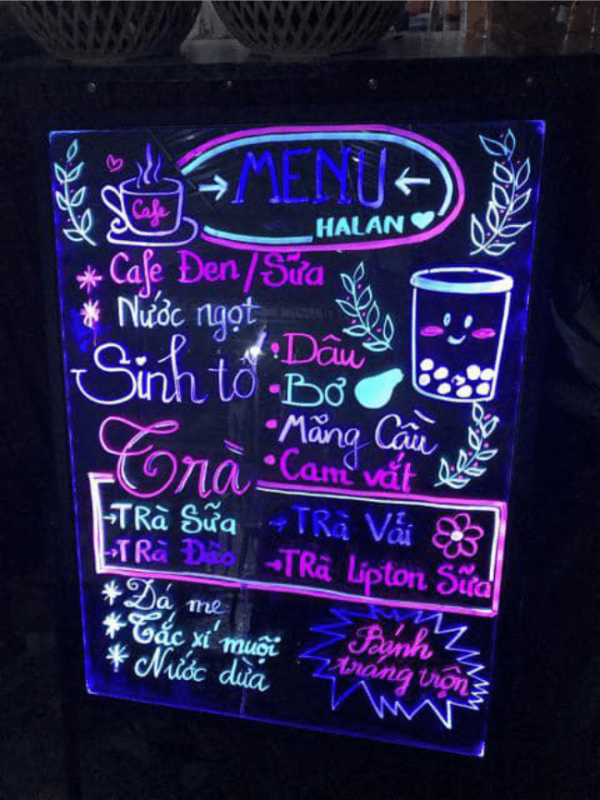 MENU
Cafe
HALAN
Cafe Đen/Sữa
Nước ngọt
Sinh tố
Dâu
Bơ
Mãng Cầu
Cam vắt
Trà
TRà Sữa
TRà Vải
TRà Đào
TRà Lipton Sữa
Đá me
Tắc xí muội
Nước dừa
Bánh
tráng trộn